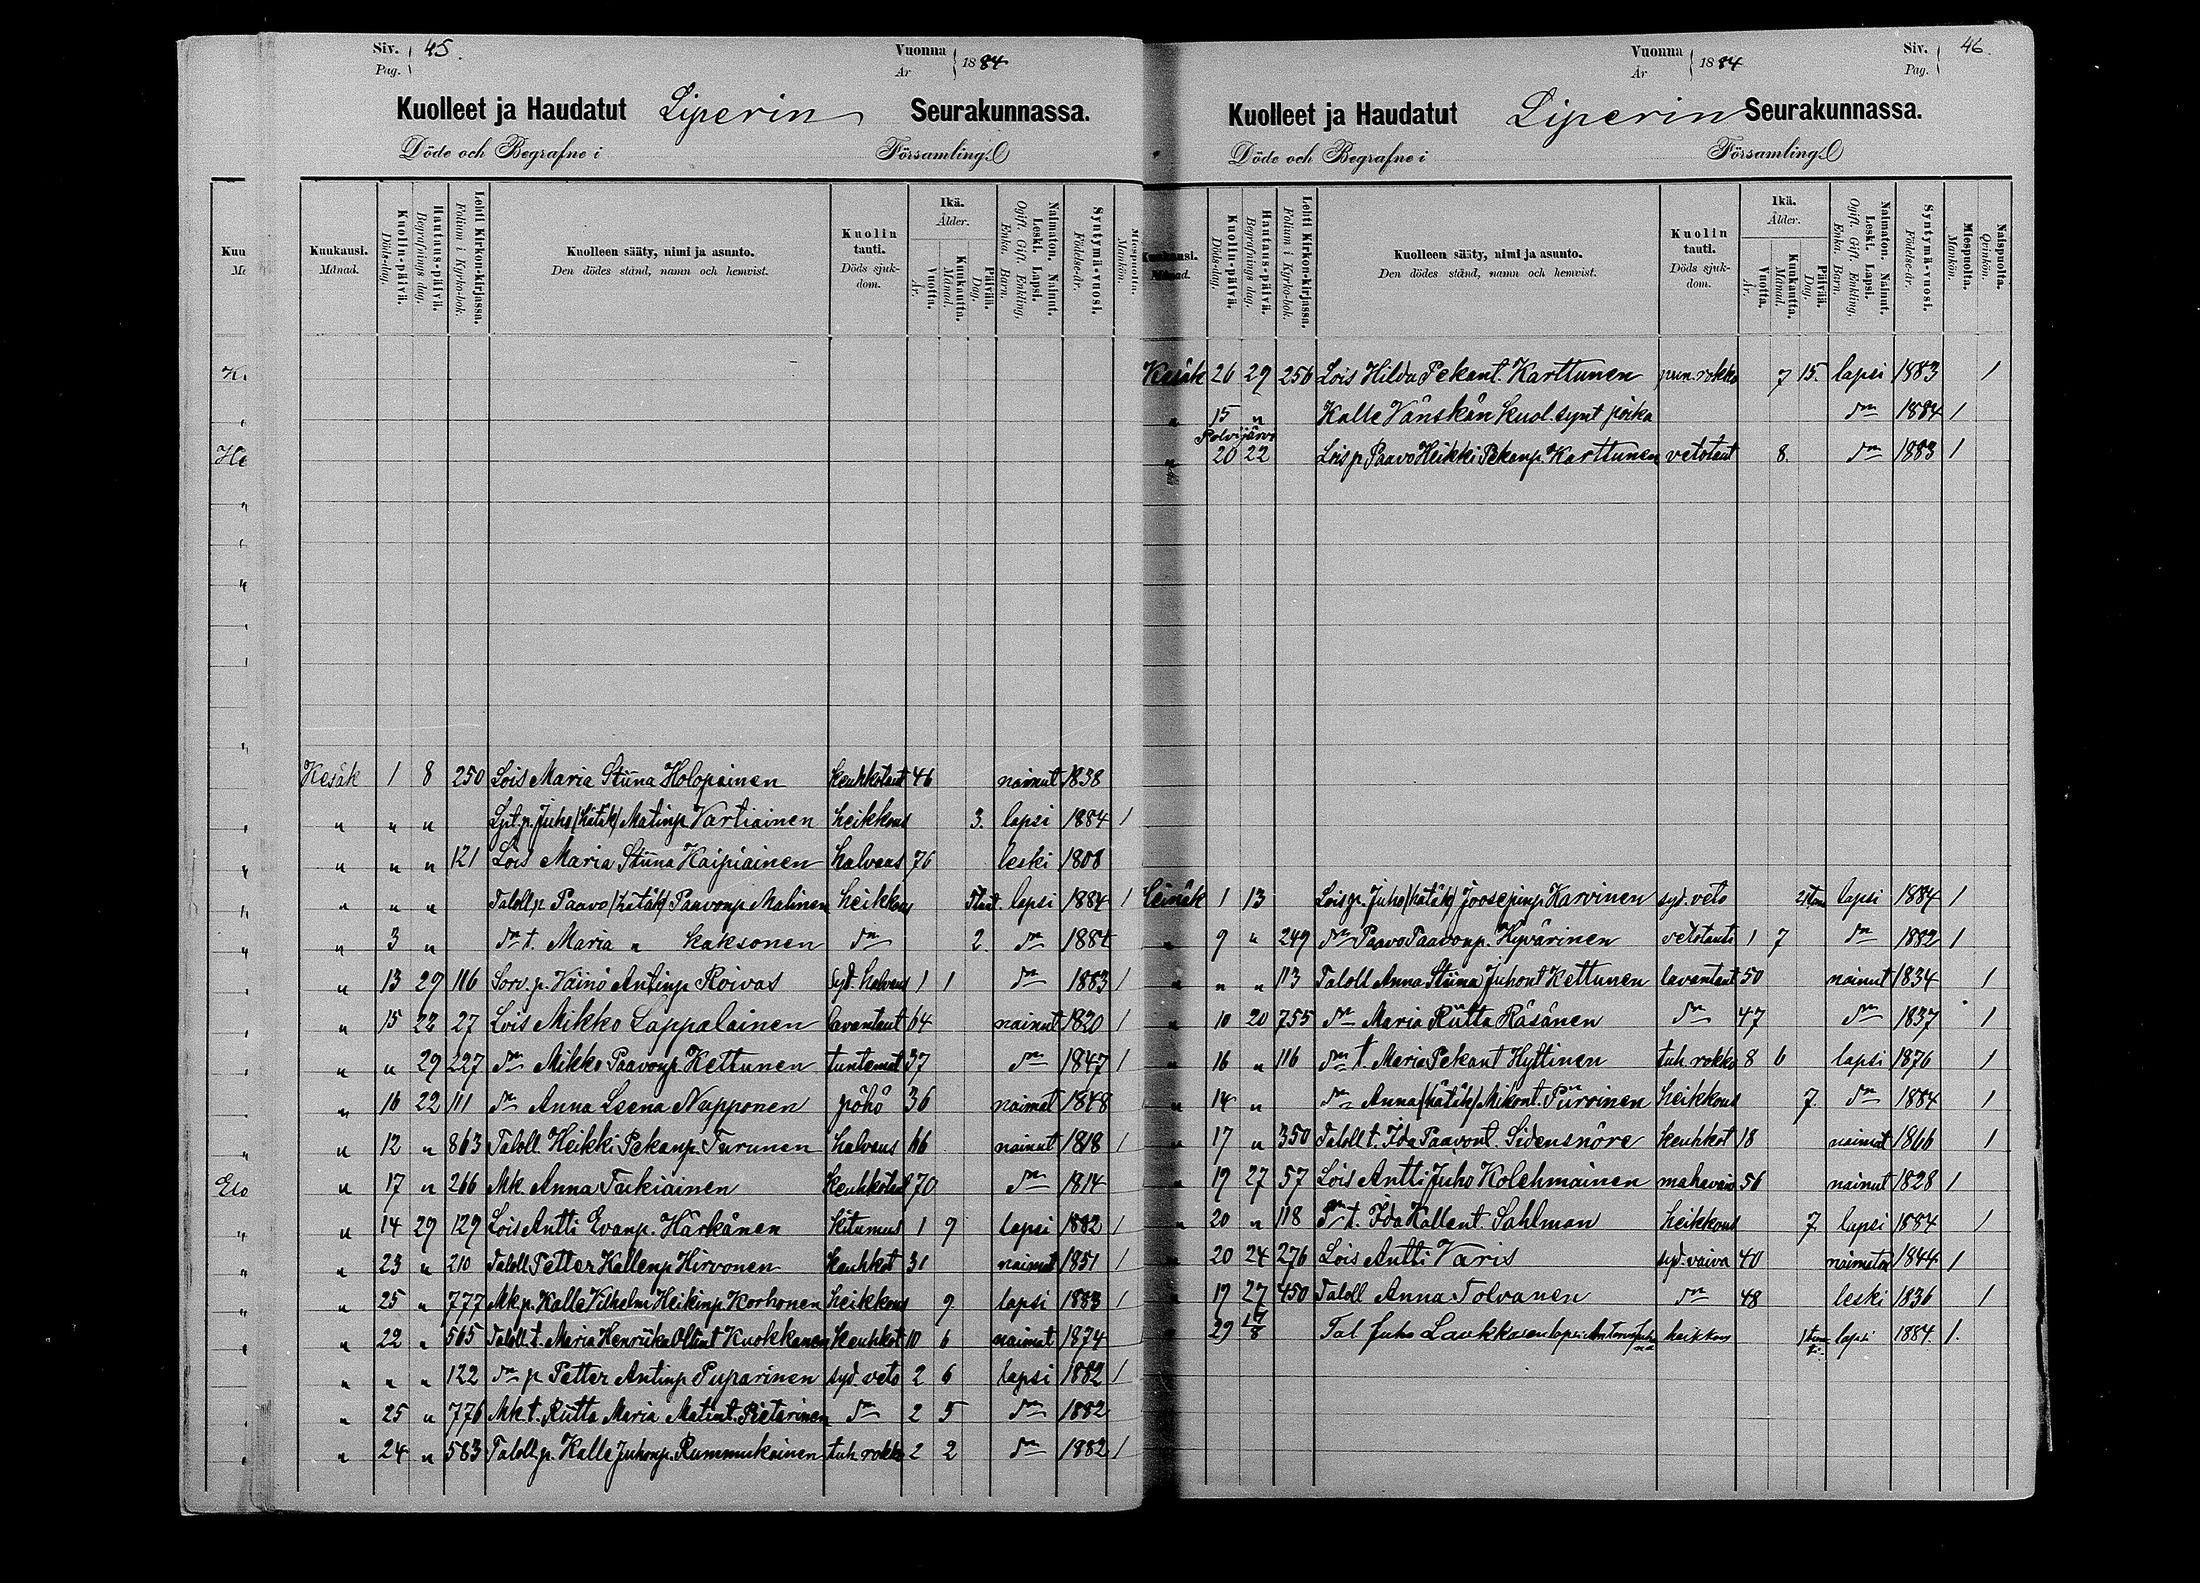 Siv. Pag. 45.
Vuonna År 1884
Kuolleet ja Haudatut Liperin Seurakunnassa.
Döde och Begrafne i Församling.
Kuukausi. Månad.
Kuolin-päivä. Döds-dag.
Hautaus-päivä. Begrafnings dag.
Lehti Kirkon-kirjassa. Folium i Kyrko-bok.
Kuolleen sääty, nimi ja asunto. Den dödes stånd, namn och hemvist.
Kuolin tauti. Döds sjukdom.
Ikä. Ålder.
Vuotta. År.
Kuukautta. Månad.
Päivää. Dag.
Naimaton. Nainut. Leski. Lapsi. Ogift. Gift. Enkling, Enka. Barn.
Syntymä-vuosi. Födelse-år.
Miespuolta. Mankön.
Kesäk 1 8 250 Lois Maria Stiina Holopainen keuhkotaut 46 nainut 1838
" " " Lpt.p. Juho (hätäk) Matinp Vartiainen heikkous 3. lapsi 1884 1
" " " 121 Lois Maria Stiina Kaipiainen halvaus 76 leski 1808
" " " Taloll.p Paavo (hätäk) Paavonp Malinen heikkous lapsi 1884 1
" 3 " dn t. Maria " kaksonen dn 2 dn 1884
" 13 29 116 Sorv. p. Väinö Antinp Roivas syd. halvaus 1 1 dn 1883 1
" 15 22 27 Lois Mikko Lappalainen lavantaut 64 nainut 1820 1
" " 29 227 dn Mikko Paavonp Kettunen tuntemat 37 dn 1847 1
" 16 22 111 dn Anna Leena Napponen pöhö 36 naimat 1848
" 12 " 863 Taloll. Heikki Pekanp Turunen halvaus 66 nainut 1818 1
" 17 " 266 Mk. Anna Tukiainen keuhkotaut 70 dn 1814
" 14 29 129 Lois Antti Evanp. Härkänen kitumus 1 9 lapsi 1882 1
" 23 " 210 Taloll Petter Kallenp Hirvonen keuhkot 31 naimat 1851 1
" 25 " 777 Mk p. Kalle Vilhelm Heikinp Korhonen heikkous 9 lapsi 1883 1
" 22 " 565 Taloll t. Maria Henriika Ollint Kuokkanen keuhkot 10 6 naimat 1874
" " " 122 dn p Petter Antinp Puparinen syd. veto 2 6 lapsi 1882 1
" 25 " 776 Mk t. Riitta Maria Matint. Pietarinen dn 2 5 dn 1882
" 24 " 583 Taloll.p. Kalle Juhonp. Rummukainen tuh rokko 2 2 dn 1882 1
Siv. Pag. 46.
Vuonna År 1884
Kuolleet ja Haudatut Liperin Seurakunnassa.
Döde och Begrafne i Församling.
Kuukausi. Månad.
Kuolin-päivä. Döds-dag.
Hautaus-päivä. Begrafnings dag.
Lehti Kirkon-kirjassa. Folium i Kyrko-bok.
Kuolleen sääty, nimi ja asunto. Den dödes stånd, namn och hemvist.
Kuolin tauti. Döds sjukdom.
Ikä. Ålder.
Vuotta. År.
Kuukautta. Månad.
Päivää. Dag.
Naimaton. Nainut. Leski. Lapsi. Ogift. Gift. Enkling, Enka. Barn.
Syntymä-vuosi. Födelse-år.
Miespuolta. Mankön.
Naispuolta. Qvinkön.
Kesäk 26 29 256 Lois Hilda Pekant. Karttunen pun. rokko 7 15. lapsi 1883 1
" 15 " Kalle Vänskän kuol. synt poika dn 1884 1
Polvijärvi
" 20 22 Lois p Paavo Heikki Pekanp. Karttunen vetotaut 8. dn 1883 1
Heinäk 1 13 Lois p. Juho (hätäk) Joosepinp Karvinen syd. veto lapsi 1884 1
" 9 " 249 dn Paavo Paavonp. Hyvärinen vetotauti 1 7 dn 1882 1
" " " 113 Taloll Anna Stiina Juhont Kettunen lavantaut 50 nainut 1834 1
" 10 20 755 dn Maria Riitta Räsänen dn 47 dn 1837 1
" 16 " 116 dn t. Maria Pekant Hyttinen tuh. rokko 8 6 lapsi 1876 1
" 14 " dn Anna (hätäk) Mikont. Puroinen heikkous 7. dn 1884 1
" 17 " 350 Taloll t. Ida Paavont. Sidensnöre keuhkot 18 naimat 1866 1
" 19 27 57 Lois Antti Juho Kolehmainen mahavaiv 56 nainut 1828 1
" 20 " 118 dn t. Ida Kallent Sahlman heikkous 7 lapsi 1884 1
20 24 276 Lois Antti Varis syd. vaiva 40 naimaton 1844 1
" 19 27 450 Taloll Anna Tolvanen dn 48 leski 1836 1
" 29 17/8 Tal Juho Laukkosen lapsi heikkous lapsi 1884. 1.